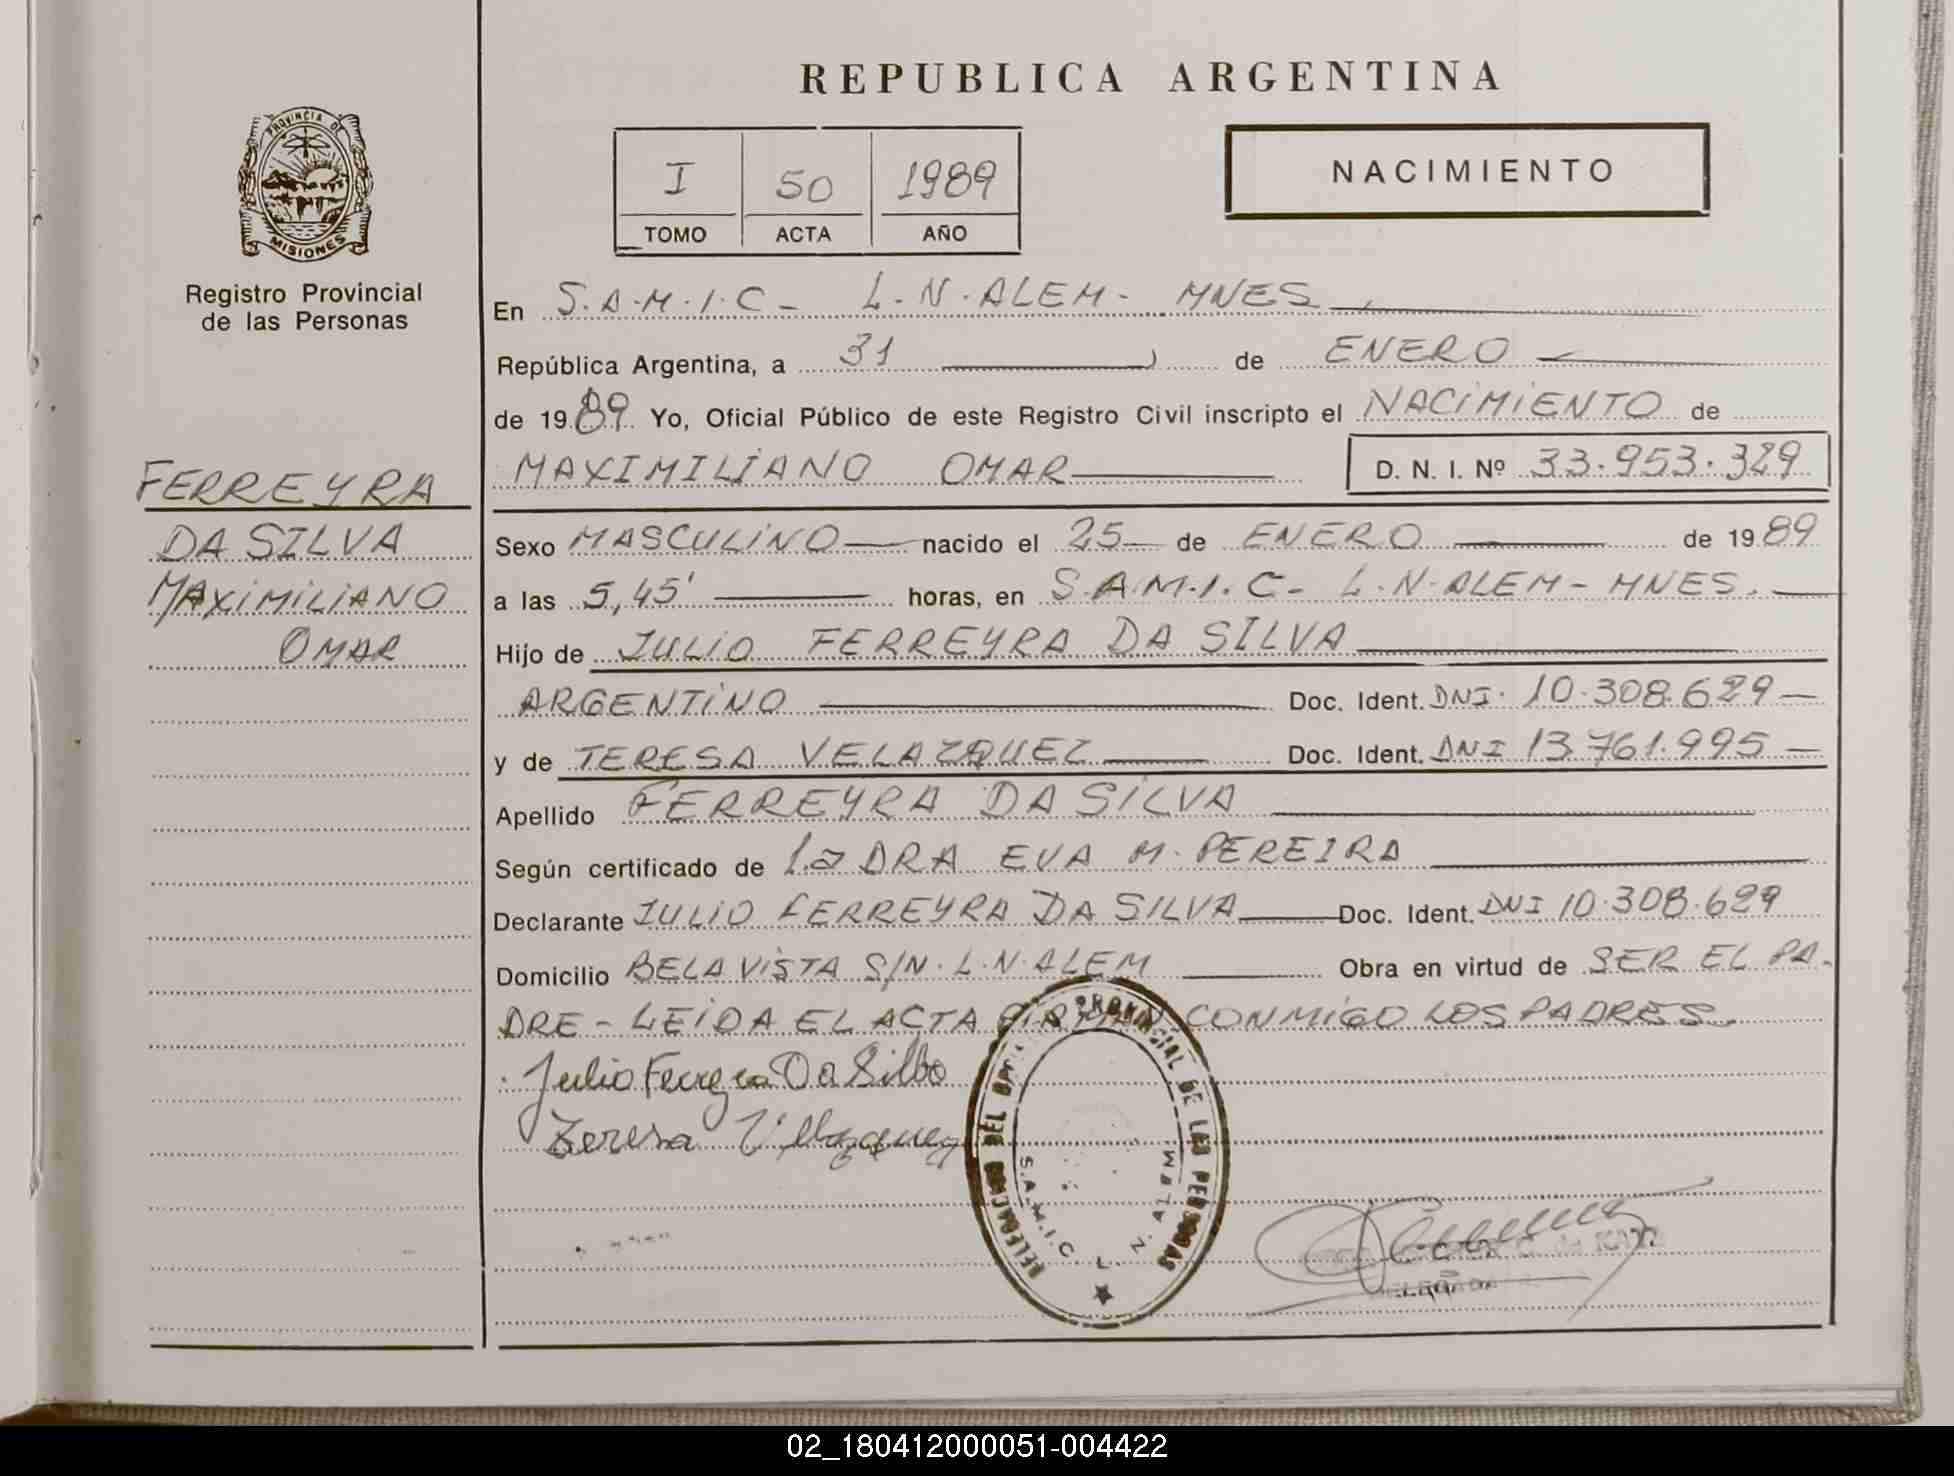 REPUBLICA ARGENTINA
PROVINCIA DE
MISIONES
Registro Provincial
de las Personas
I 50 1989
TOMO ACTA AÑO
NACIMIENTO
FERREYRA
DA SILVA
MAXIMILIANO
OMAR
En S.A.M.I.C - L.N.ALEM - MNES
República Argentina, a 31 de ENERO
de 1989 Yo, Oficial Público de este Registro Civil inscripto el NACIMIENTO de
MAXIMILIANO OMAR D. N. I. Nº 33.953.329
Sexo MASCULINO nacido el 25 de ENERO de 1989
a las 5,45' horas, en S.A.M.I.C - L.N.ALEM - MNES.
Hijo de JULIO FERREYRA DA SILVA
ARGENTINO Doc. Ident. DNI. 10.308.629
y de TERESA VELAZQUEZ Doc. Ident. DNI 13.761.995
Apellido FERREYRA DA SILVA
Según certificado de La DRA EVA M. PEREIRA
Declarante JULIO FERREYRA DA SILVA Doc. Ident. DNI 10.308.629
Domicilio BELA VISTA S/N. L.N.ALEM Obra en virtud de SER EL PA-
DRE - LEIDA EL ACTA FIRMAN CONMIGO LOS PADRES.
Julio Ferreyra Da Silba
Teresa Velazquez
DELEGACION DEL REG. PROVINCIAL DE LAS PERSONAS
S.A.M.I.C. L. N. ALEM
DELEGADA
02_180412000051-004422